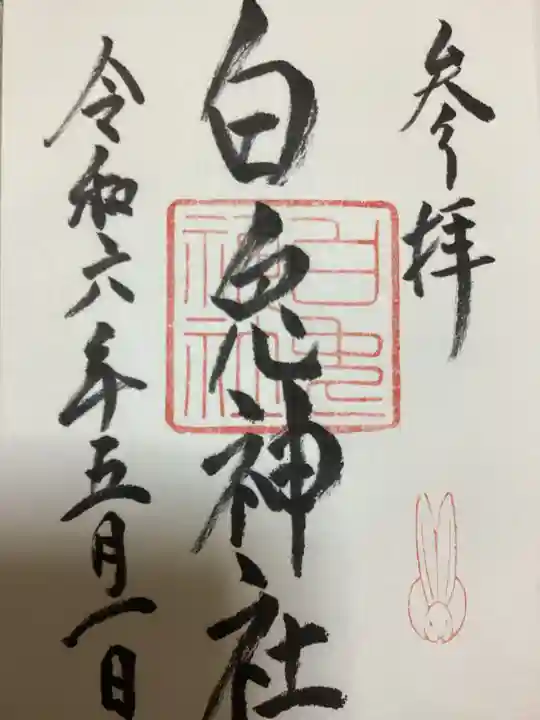 参拝
白兎神社
白兎神社
令和六年五月一日